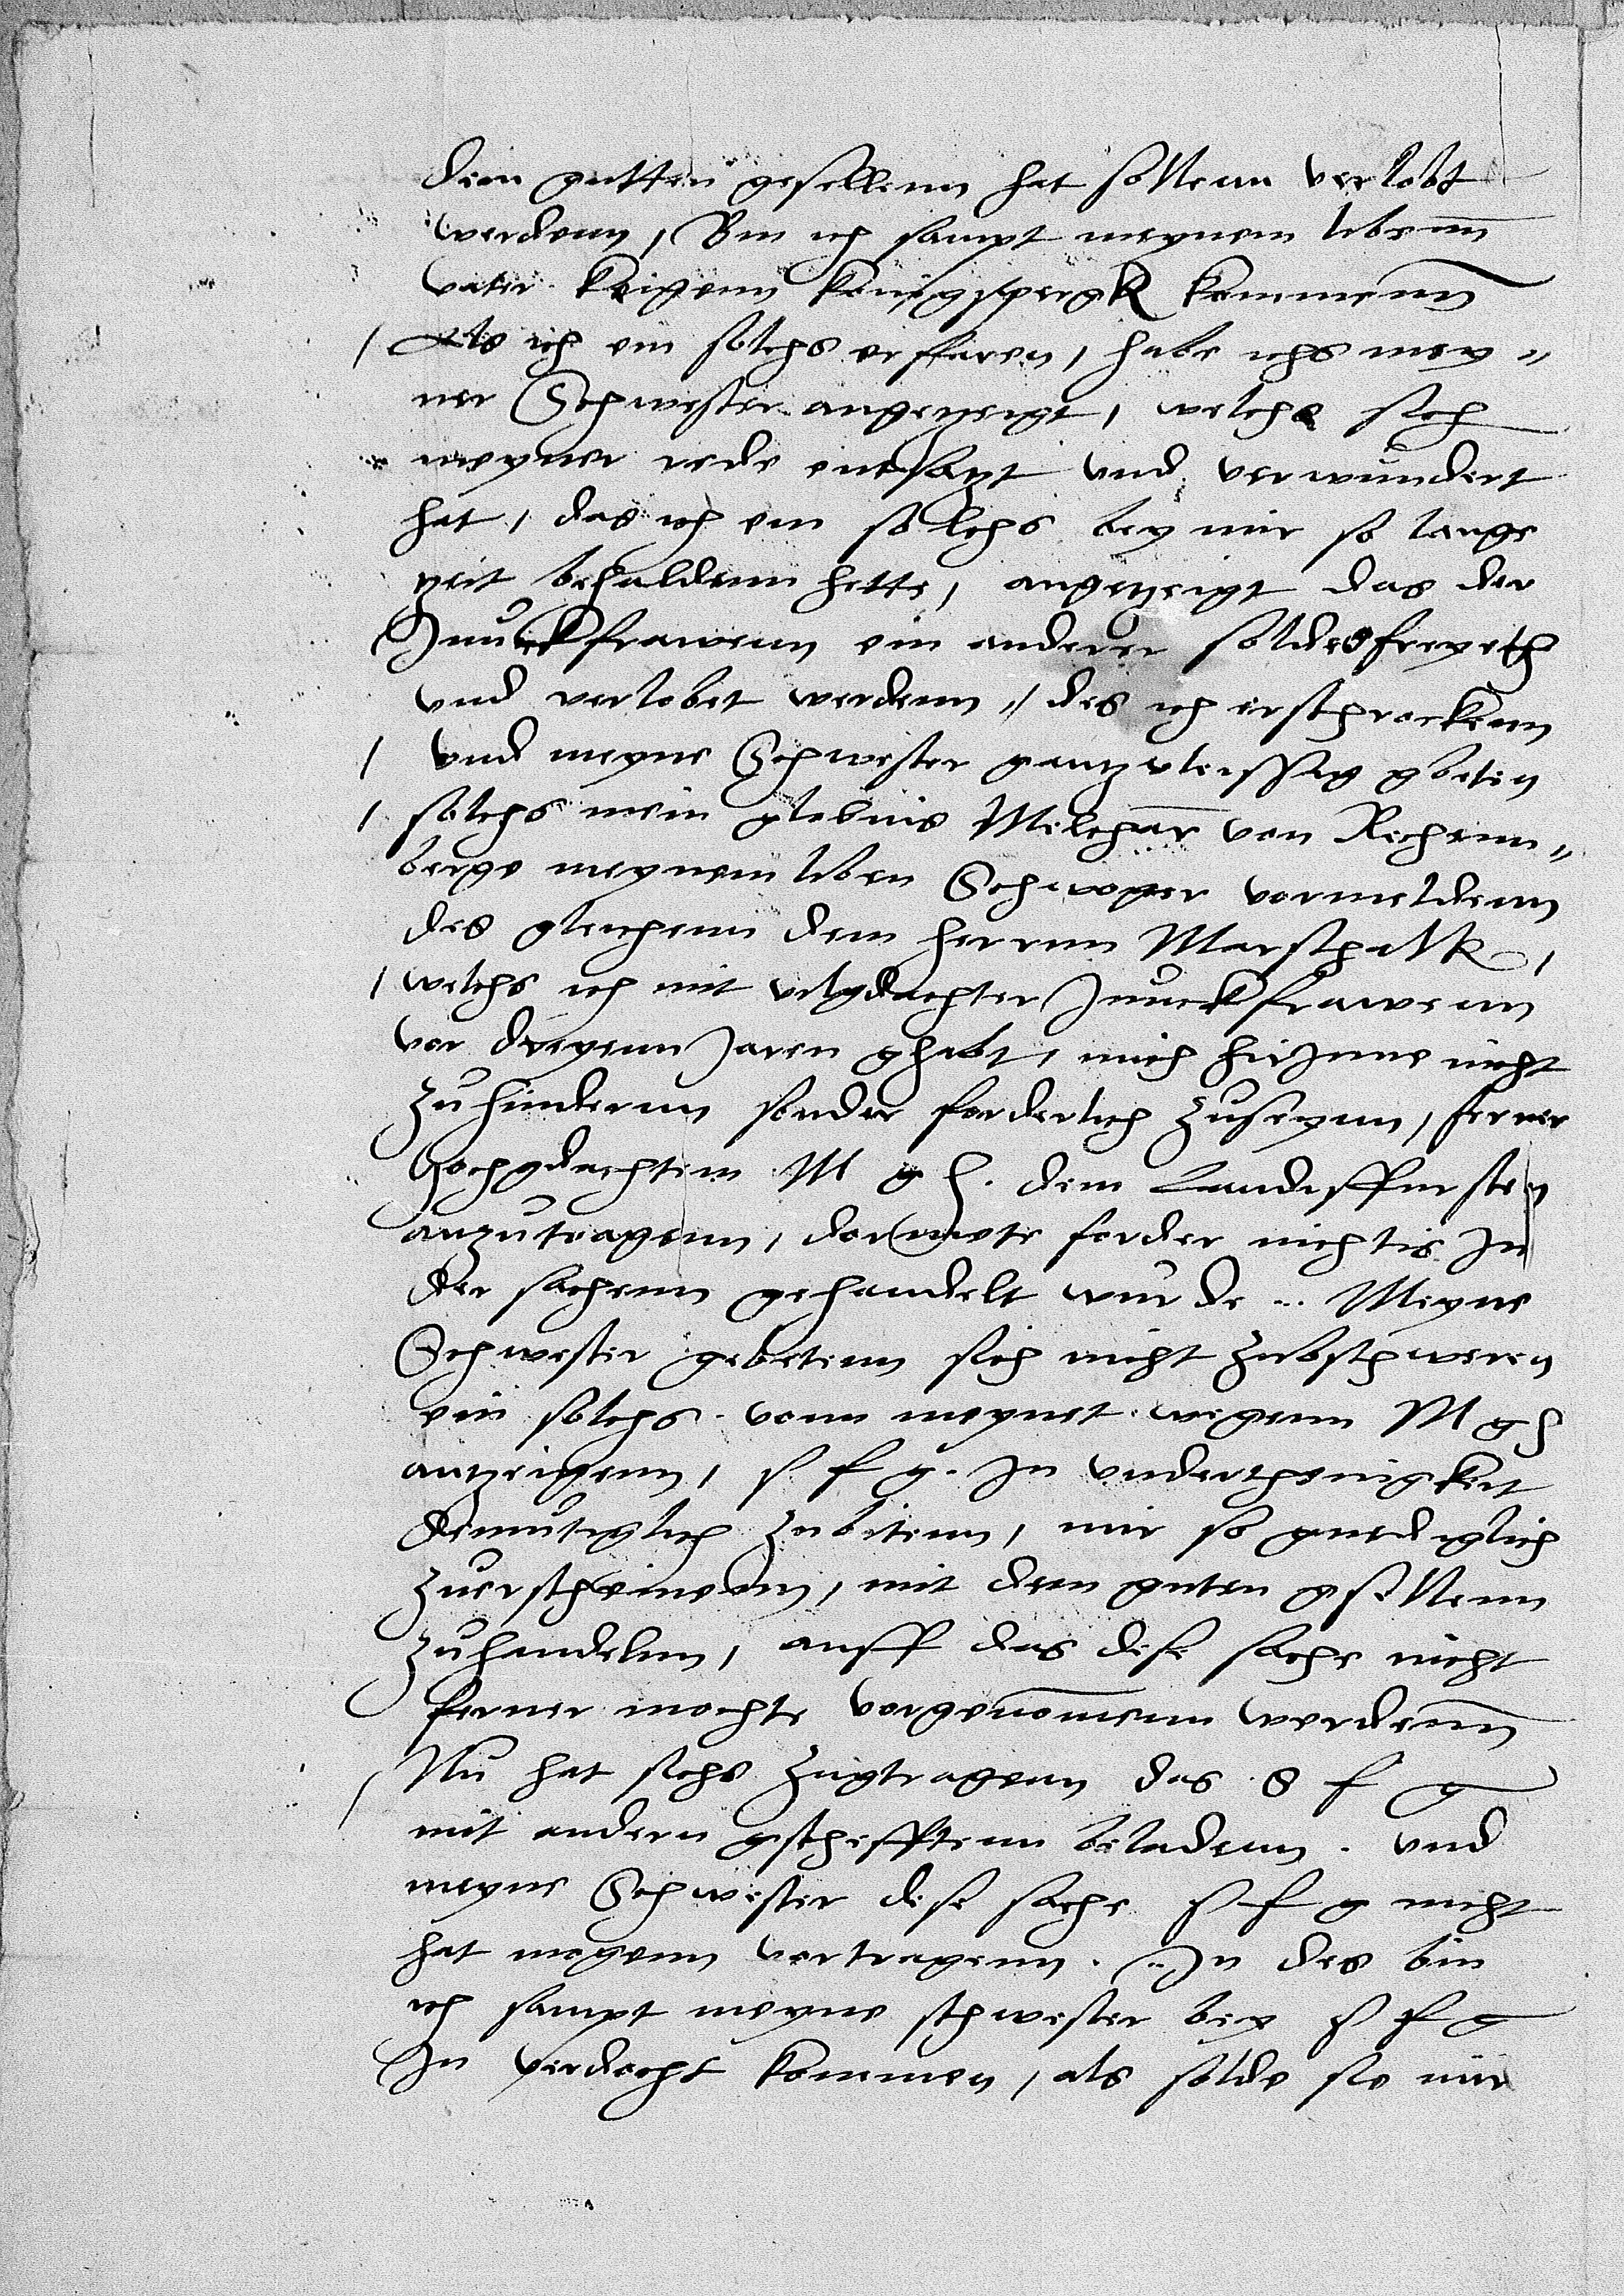 dem gutten gesellenn hat sollenn verlobt
werdenn, Bin ich sampt meynem lieben
vater keigenn königspergk kommenn
/ Als ich ein solchs erffaren, habe ichs mey„
ner Schwester angezeigt, welche sich
meyner rede entsatzt vnd verwundert
hat, das ich ein solchs bey mir so lange
zeit behaldenn hette, angezeigt das der
Junckfrawenn ein anderer solde gefreyeth
vnd verlobet werdenn, des ich erschrockenn
/ vnd meyne Schwester gantz vleissig gbeten
/ solchs mein glebnis Melchar von Rechenn„
berge meynem liben Schwoger vormeldenn
des gleichenn dem herrnn Marschalk,
/ welchs ich mit vilgedachter Junckfrawenn
vor dreyenn Jaren ghabt, mich hirJnne nicht
zuhindernn sonder forderlich zuseynn, ferner
Hochgedachtem M g h. dem Landesffursten
anzutragenn, dormete forder nichtes Jn
der sachenn gehandelt wurde .. Meyne
Schwester gebetenn sich nicht zubschweren
ein solchs vonn meynet wegenn M g h
antzeigenn, s f g. Jn vnderthenigkeit
demutiglich zubitenn, mir so gnediglich
zuerscheinenn, mit dem guten gsellenn
zuhandelnn, auff das dise sache nicht
ferner mochte vorgenommenn werdenn
/ Nu hat sichs zugtragenn das s f g
mit andern gschefftenn beladenn. vnd
meyne Schwester dise sache s f g nicht
hat mogenn vortragenn. Jn des bin
ich sampt meyne schwester bey s f g
Jn verdacht kommen, als solde sie mir